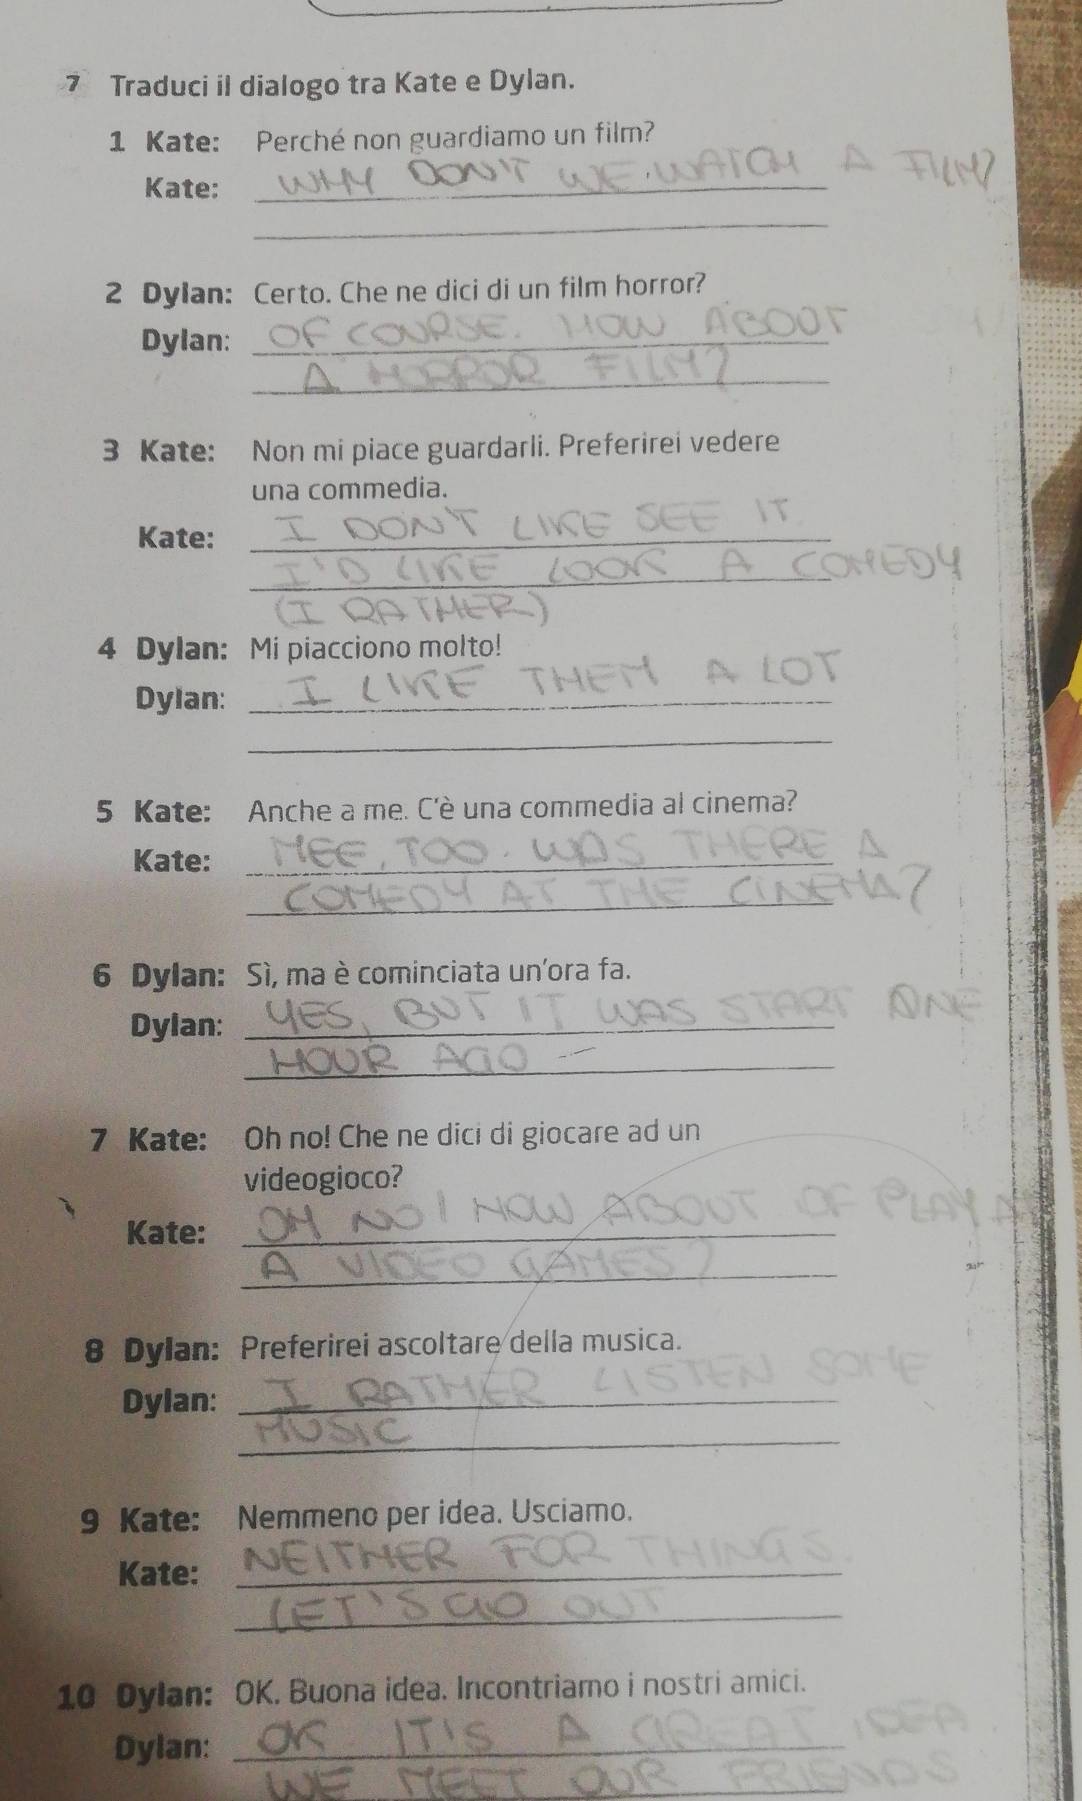 7 Traduci il dialogo tra Kate e Dylan.
1 Kate: Perché non guardiamo un film?
Kate: WHY DON'T WE WATCH A FILM?
2 Dylan: Certo. Che ne dici di un film horror?
Dylan: OF COURSE. HOW ABOUT
A HORROR FILM?
3 Kate: Non mi piace guardarli. Preferirei vedere
una commedia.
Kate: I DON'T LIKE SEE IT.
I'D LIKE LOOK A COMEDY
(I RATHER)
4 Dylan: Mi piacciono molto!
Dylan: I LIKE THEM A LOT
5 Kate: Anche a me. C'è una commedia al cinema?
Kate: MEE, TOO. WAS THERE A
COMEDY AT THE CINEMA?
6 Dylan: Sì, ma è cominciata un'ora fa.
Dylan: YES, BUT IT WAS START ONE
HOUR AGO
7 Kate: Oh no! Che ne dici di giocare ad un
videogioco?
Kate: OH NO! HOW ABOUT OF PLAY A
A VIDEO GAMES?
8 Dylan: Preferirei ascoltare della musica.
Dylan: I RATHER LISTEN SOME
MUSIC
9 Kate: Nemmeno per idea. Usciamo.
Kate: NEITHER FOR THINGS.
LET'S GO OUT
10 Dylan: OK. Buona idea. Incontriamo i nostri amici.
Dylan: OK IT'S A GREAT IDEA.
WE MEET OUR FRIENDS